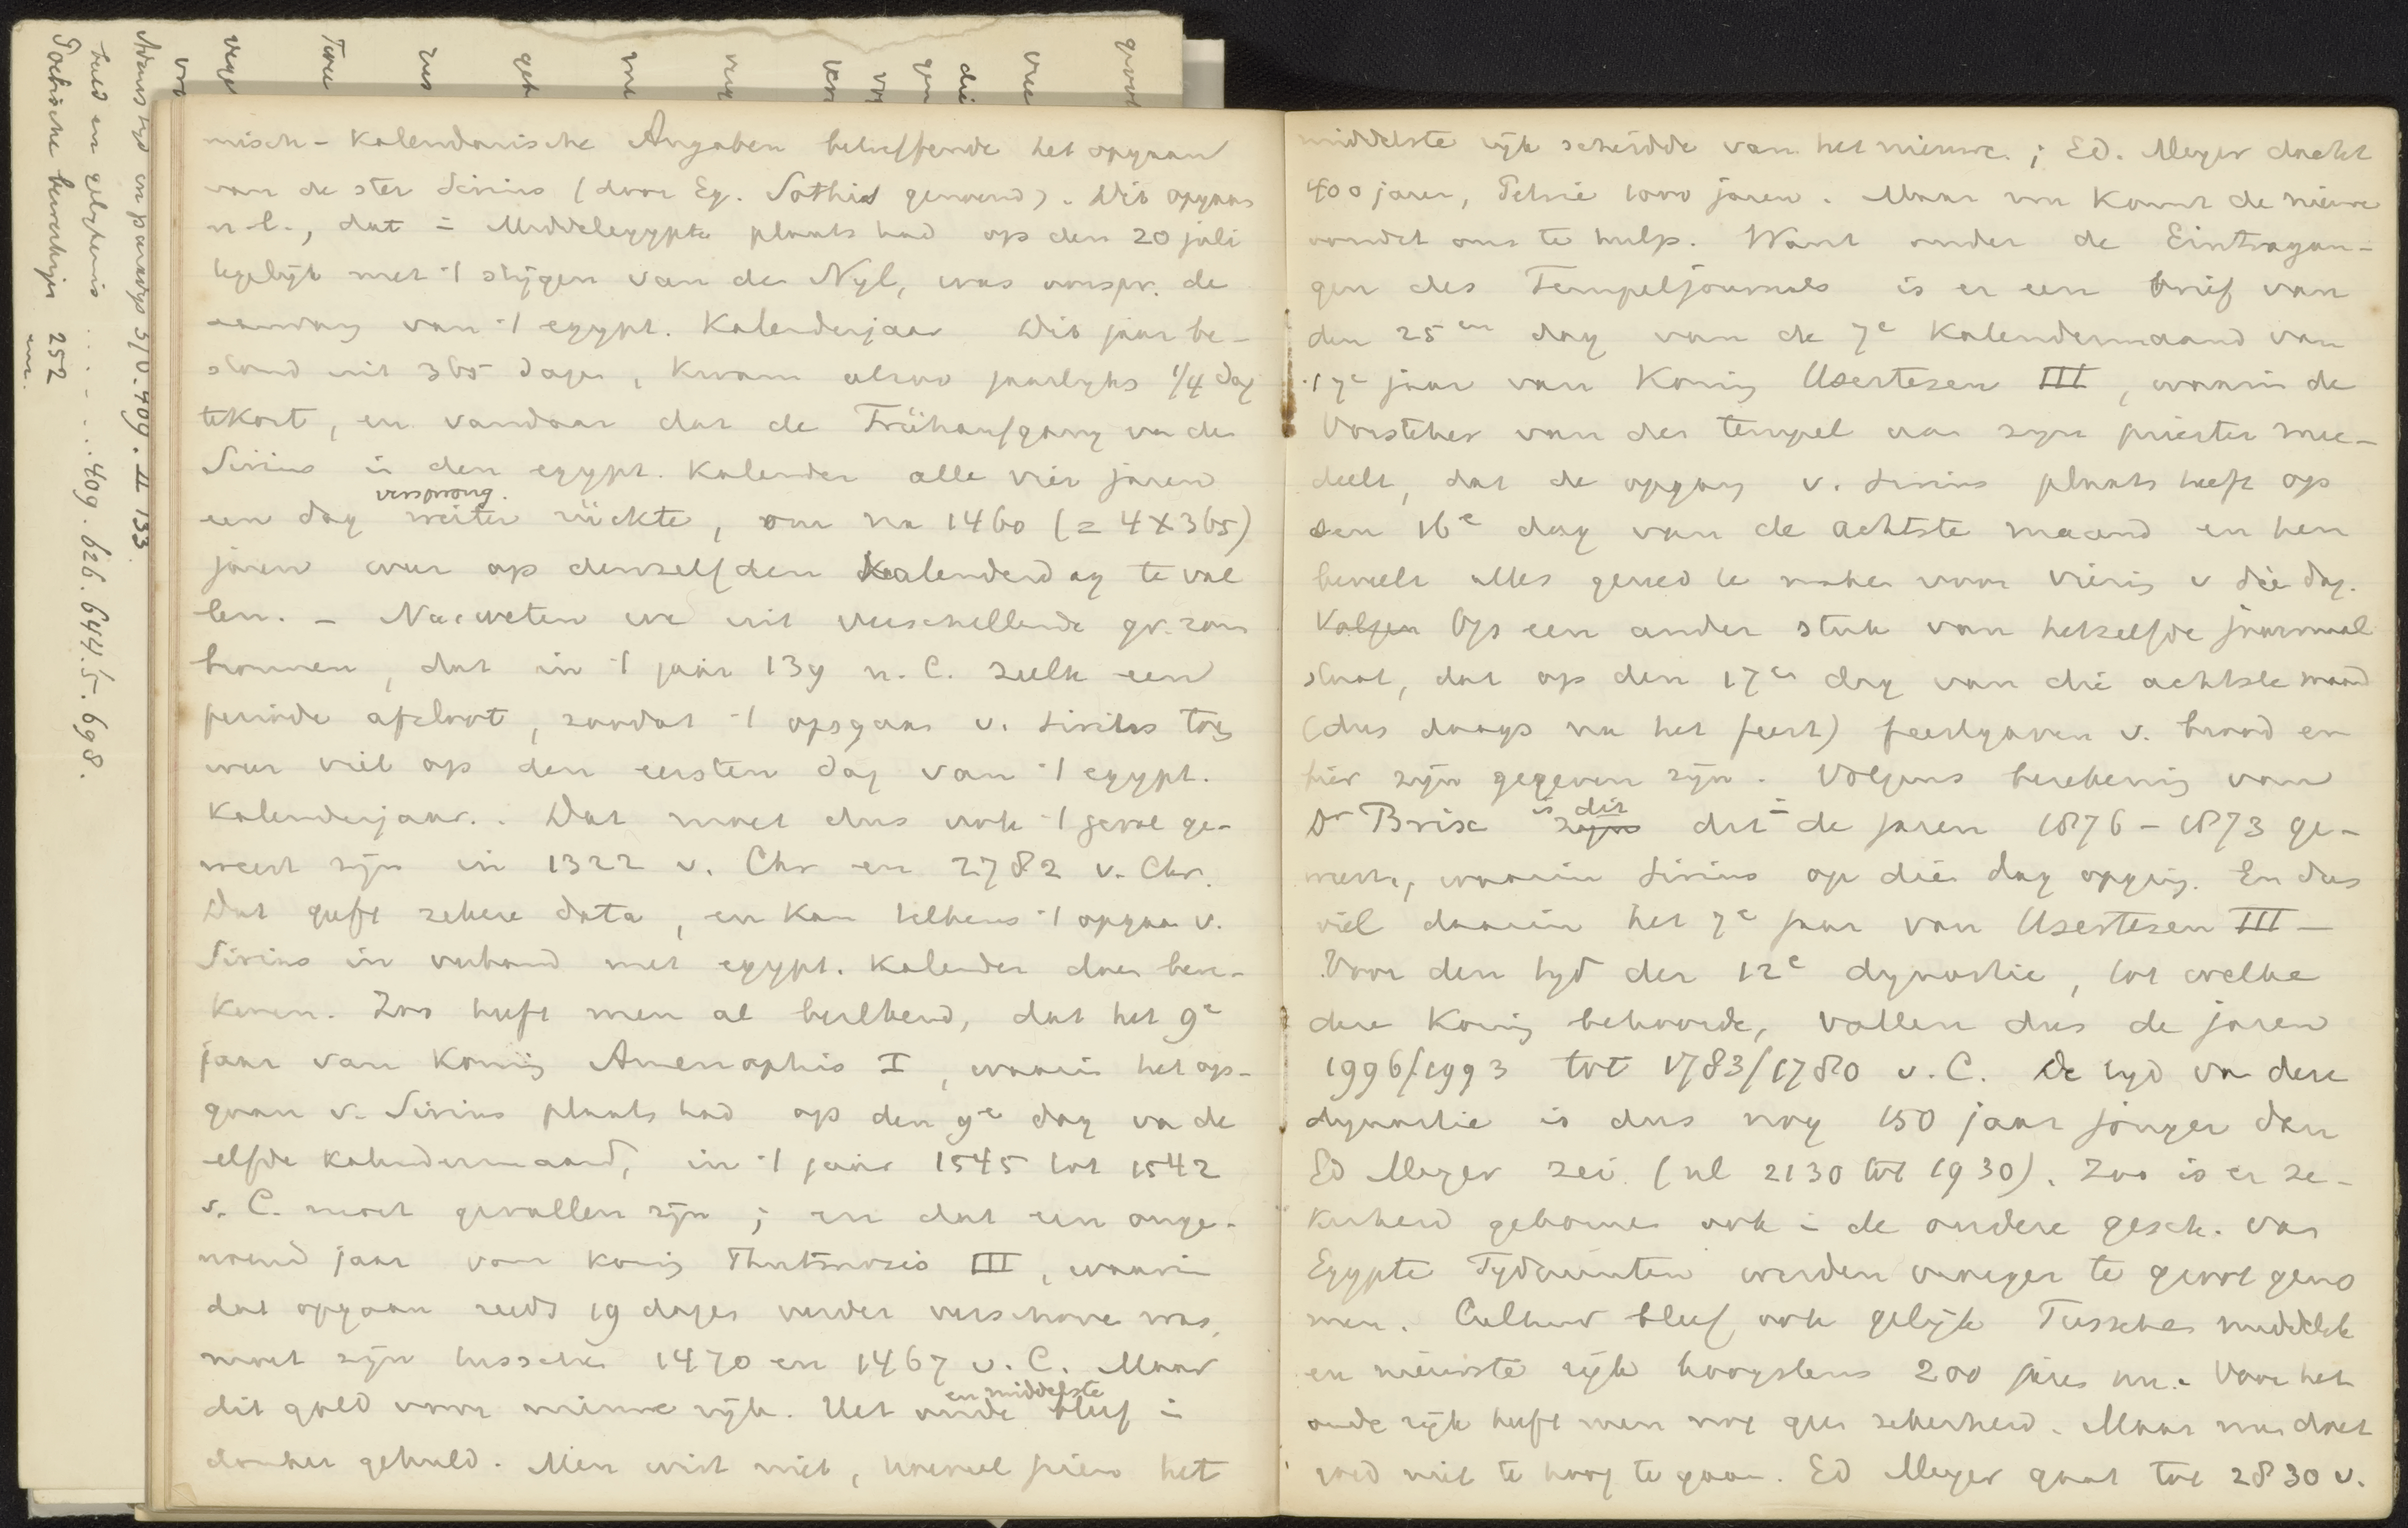 misch-Kalendarische Angaben betreffende het opgaan
van de ster Sirius (door Eg. Sothis genoemd). Dit opgaan
n.l., dat i Middelegypte plaats had op den 20 juli
tegelijk met 't stijgen van den Nyl, was oorspr. de
aanvang van 't egypt. Kalenderjaar Dit jaar be-
stond uit 365 dagen, kwam alzoo jaarlyks 1/4 dag
tekort, en vandaar dat de Frühaufgang van de
Sirius in den egypt. Kalender alle vier jaren
versprong.
een dag weiter rückte, om na 1460 (= 4 X 365)
jaren weer op denzelfden Kalenderdag te val
len. - Nu weten we uit verschillende gr. rom
bronnen, dat in 't jaar 139 n. C. zulk een
periode afsloot, zoodat 't opgaan v. Sirius toen
weer viel op den eersten dag van 't egypt.
Kalenderjaar. Dat moet dus ook 't geval ge-
weest zijn in 1322 v. Chr en 2782 v. Chr.
Dat geeft zekere data, en kan telkens 't opgaan v.
Sirius in verband met egypt. Kalender doen bere-
kenen. Zoo heeft men al berekend, dat het 9e
jaar van Koning Amenophis I, waarin het op-
gaan v. Sirius plaats had op den 9e dag van de
elfde kalendermaand, in 't jaar 1545 tot 1542
v. C. moet gevallen zijn; en dat een onge-
noemd jaar van koning Thutmosis III, waarin
dat opgaan reeds 19 dagen verder verschoven was,
moet zijn tusschen 1470 en 1467 v. C. Maar
en middelste
dit gold voor nieuwe rijk. Het oude bleef i
donker gehuld. Men wist niet, hoeveel jaren het
middelste rijk scheidde van het nieuwe; Ed. Meyer dacht
400 jaren, Petrie 1000 jaren. Maar nu komt de nieuwe
vondst ons te hulp. Want onder de Eintragun-
gen des Tempeljournals is er een brief van
den 25en dag van de 7e Kalendermaand van
't 7e jaar van Koning Usertesen III, waarin de
Vorsteher van den tempel aan zijn priester mee-
deelt, dat de opgang v. Sirius plaats heeft op
den 16e dag van de achtste maand en hen
beveelt alles gereed te maken voor viering v die dag.
Volgen Op een ander stuk van hetzelfde journaal
staat, dat op den 17en dag van die achtste maand
(dus daags na het feest) feestgaven v. brood en
bier zijn gegeven zijn. Volgens berekening van
is dit i
Dr Brix zijn dit de jaren 1876 - 1873 ge-
weest, waarin Sirius op dien dag opging. En dus
viel daarin het 7e jaar van Usertesen III -
Voor den tyd der 12e dynastie, tot welke
deze Koning behoorde, vallen dus de jaren
1996/1993 tot 1783/1780 v. C. De tyd van deze
dynastie is dus nog 150 jaar jonger dan
Ed Meyer zei (nl 2130 tot 1930). Zoo is er ze-
kerheid gekomen ook i de oudere gesch. van
Egypte Tydruimten werden vroeger te groot geno
men. Cultuur bleef ook gelijk Tusschen middelste
en nieuwste rijk hoogstens 200 jaren in. Voor het
oude rijk heeft men nog geen zekerheid. Maar men doet
goed niet te hoog te gaan. Ed Meyer gaat tot 2830 v.
Adams tyd en paradys 5/6. 409. II 133.
beeld en gelykenis ...... 409. 626. 644. 5. 698.
252